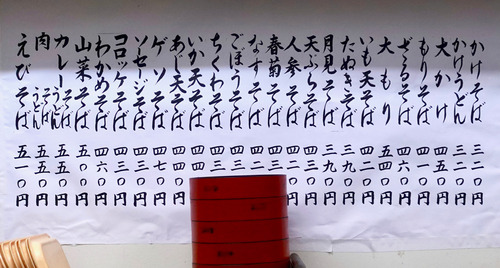 かけそば 三二〇円
かけうどん 三二〇円
大かけ 四五〇円
もりそば 四一〇円
ざるそば 四六〇円
大もり 五四〇円
いも天そば 四二〇円
たぬきそば 三九〇円
月見そば 三九〇円
天ぷらそば 四三〇円
人参そば 四二〇円
春菊そば 四三
なすそば 四二
ごぼうそば 四三
ちくわそば 四四
いか天そば 四四
あじ天そば 四四〇円
ゲソそば 四七〇円
ソーセージそば 四三〇円
コロッケそば 四三〇円
わかめそば 四六〇円
山菜そば 五〇〇円
カレーそばうどん 五五〇円
肉そばうどん 五五〇円
えびそば 五一〇円